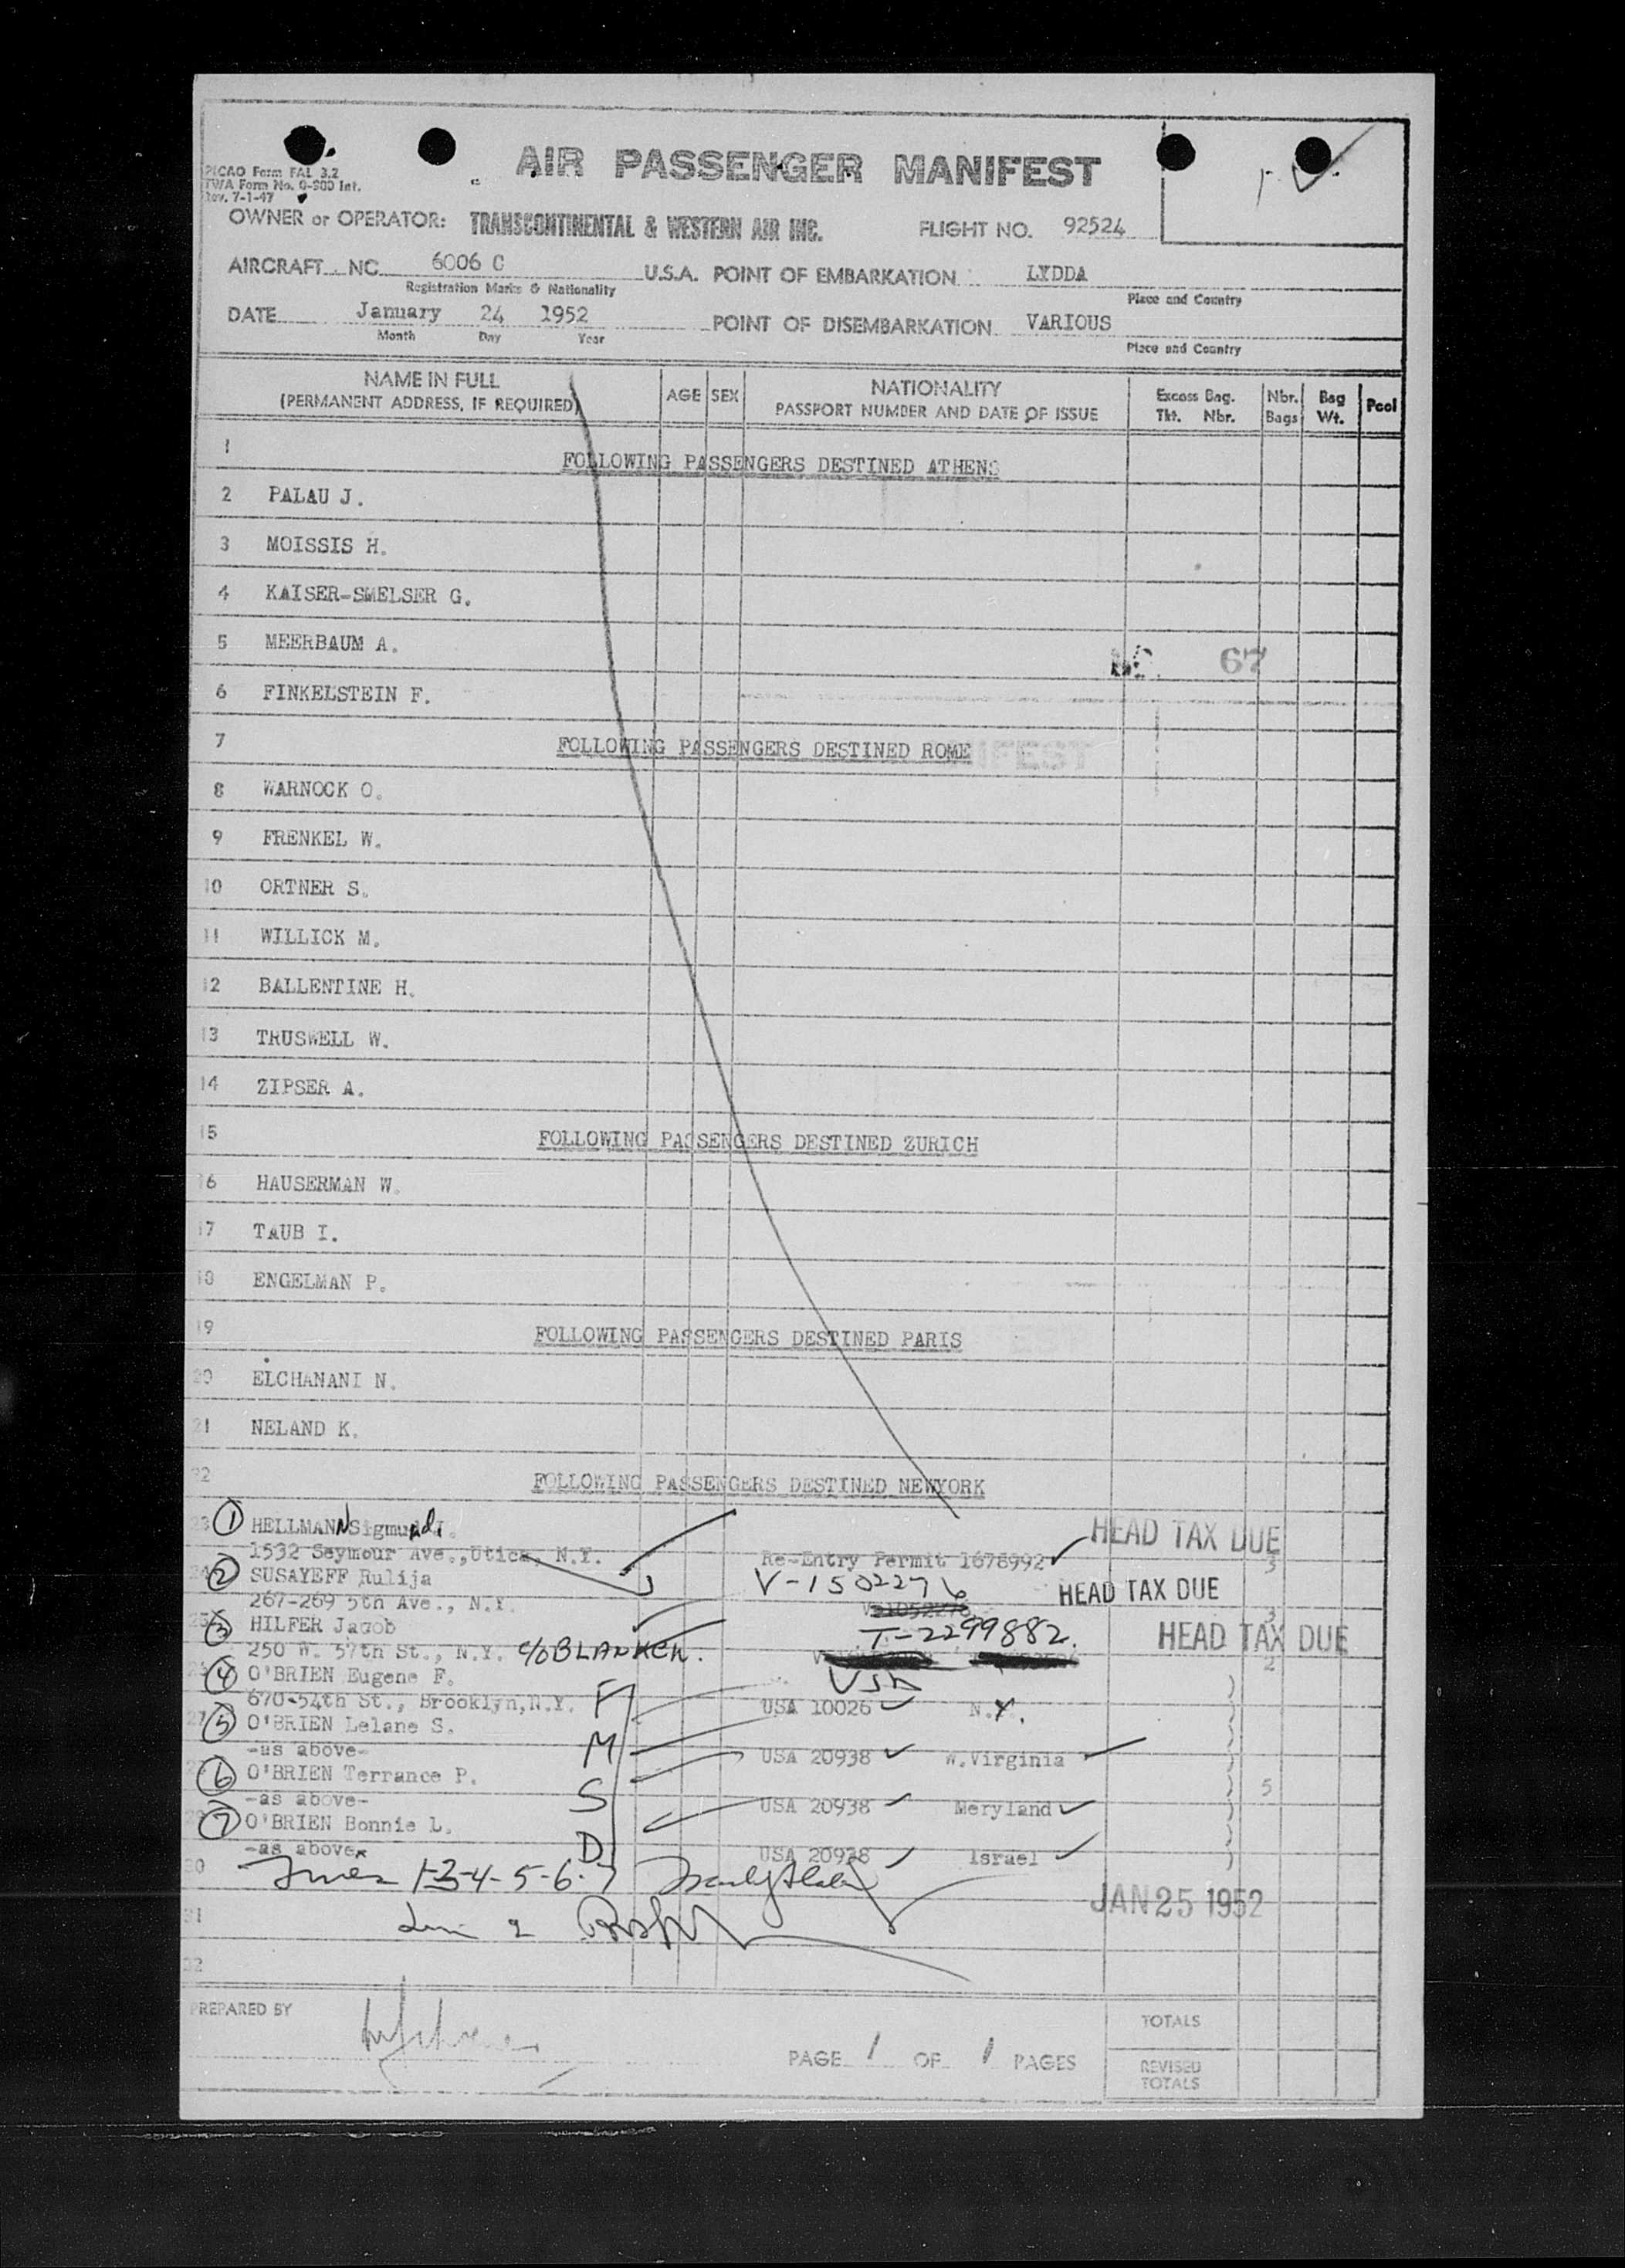 PICAO Form FAL 3.2
TWA Form No. O-900 Int.
Rev. 7-1-47
AIR PASSENGER MANIFEST
OWNER or OPERATOR: TRANSCONTINENTAL & WESTERN AIR INC. FLIGHT NO. 92524
AIRCRAFT NC 6006 C U.S.A. POINT OF EMBARKATION LYDDA
Registration Marks & Nationality Place and Country
DATE January 24 1952 POINT OF DISEMBARKATION VARIOUS
Month Day Year Place and Country
NAME IN FULL AGE SEX NATIONALITY Excess Bag. Nbr. Bag Pool
(PERMANENT ADDRESS, IF REQUIRED) PASSPORT NUMBER AND DATE OF ISSUE Tkt. Nbr. Bags Wt.
1 FOLLOWING PASSENGERS DESTINED ATHENS
2 PALAU J.
3 MOISSIS H.
4 KAISER-SMELSER G.
5 MEERBAUM A. 67
6 FINKELSTEIN F.
7 FOLLOWING PASSENGERS DESTINED ROME
8 WARNOCK O.
9 FRENKEL W.
10 ORTNER S.
11 WILLICK M.
12 BALLENTINE H.
13 TRUSWELL W.
14 ZIPSER A.
15 FOLLOWING PASSENGERS DESTINED ZURICH
16 HAUSERMAN W.
17 TAUB I.
18 ENGELMAN P.
19 FOLLOWING PASSENGERS DESTINED PARIS
20 ELCHANANI N.
21 NELAND K.
22 FOLLOWING PASSENGERS DESTINED NEWYORK
23 1 HELLMANN Sigmund I. HEAD TAX DUE
1532 Seymour Ave., Utica, N.Y. Re-Entry Permit 1678992 3
2 SUSAYEFF Rulija V-1502276 HEAD TAX DUE
267-269 5th Ave., N.Y. 3
3 HILFER Jacob T-2299882. HEAD TAX DUE
250 W. 57th St., N.Y. c/o 2
4 O'BRIEN Eugene F. USA
670-54th St., Brooklyn, N.Y. F USA 10026 N.Y.
5 O'BRIEN Lelane S.
-as above- M USA 20938 W.Virginia
6 O'BRIEN Terrance P. 5
-as above- S USA 20938 Meryland
7 O'BRIEN Bonnie L.
-as above- D USA 20938 Israel
30 1-3-4-5-6-7
JAN 25 1952
31 2
32
PREPARED BY TOTALS
PAGE 1 OF 1 PAGES REVISED TOTALS